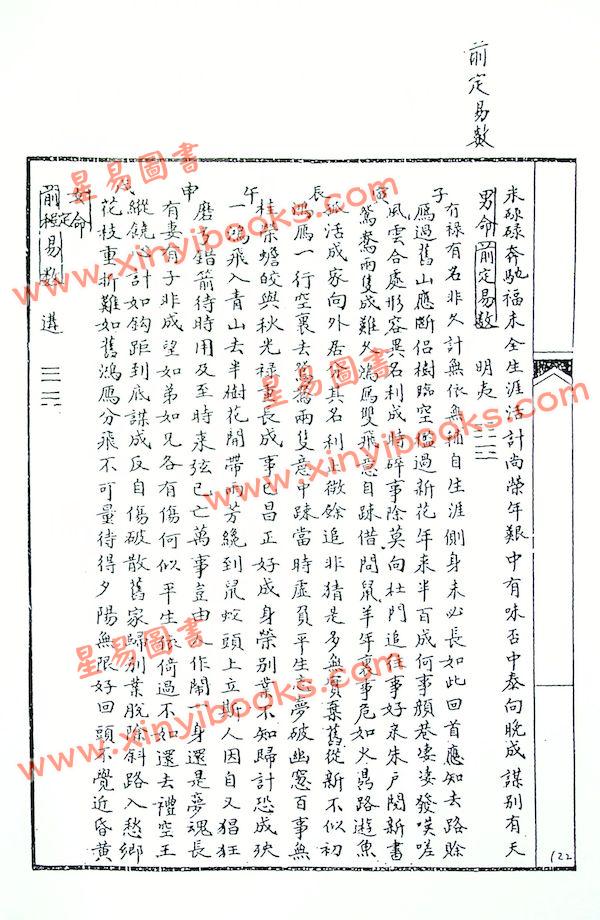 前定易數
米碌碌奔馳福未全生涯活計尚榮年艱中有味否中泰向晚成謀別有天
男命 前定易數 明夷
有禄有名非久計無依無補自生涯側身未必長如此回首應知去路賒
子
雁過舊山應斷侶樹臨空檻過新花年來半百成何事顏巷凄凄發嘆嗟
風雲合處形容異名利成時碎事除莫向杜門追往事好來朱戶閱新書
寅
鴛鴦兩隻成難久鴻雁雙飛意自疎借問鼠羊年裏事危如火湯路遊魚
孤活成家向外居 其名利上微餘追非猜是多無實棄舊從新不似初
辰
鴻雁一行空裏去鴛鴦兩隻意中疎當時虛負平生志夢破幽窓百事無
桂榮蟾皎與秋光禄 長成事已昌正好成身榮別業不知歸計恐成殃
午
一鴻飛入青山去半樹花開帶雨芳纔到鼠蛇頭上立斯人因自又猖狂
磨弓錯箭待時用及至時來弦已亡萬事豈由 作鬧一身還是夢魂長
申
有妻有子非成望如弟如兄各有傷何似平生 倚過不如還去禮空王
縱饒心計如鈎距到底謀成反自傷破散舊家歸別業脫除斜路入愁鄉
戌
花枝重折難如舊鴻雁分飛不可量待得夕陽無限好回頭不覺近昏黃
女命
前定易數 遘
122
星易圖書
www.xinyibooks.com
星易圖書
www.xinyibooks.com
星易圖書
www.xinyibooks.com